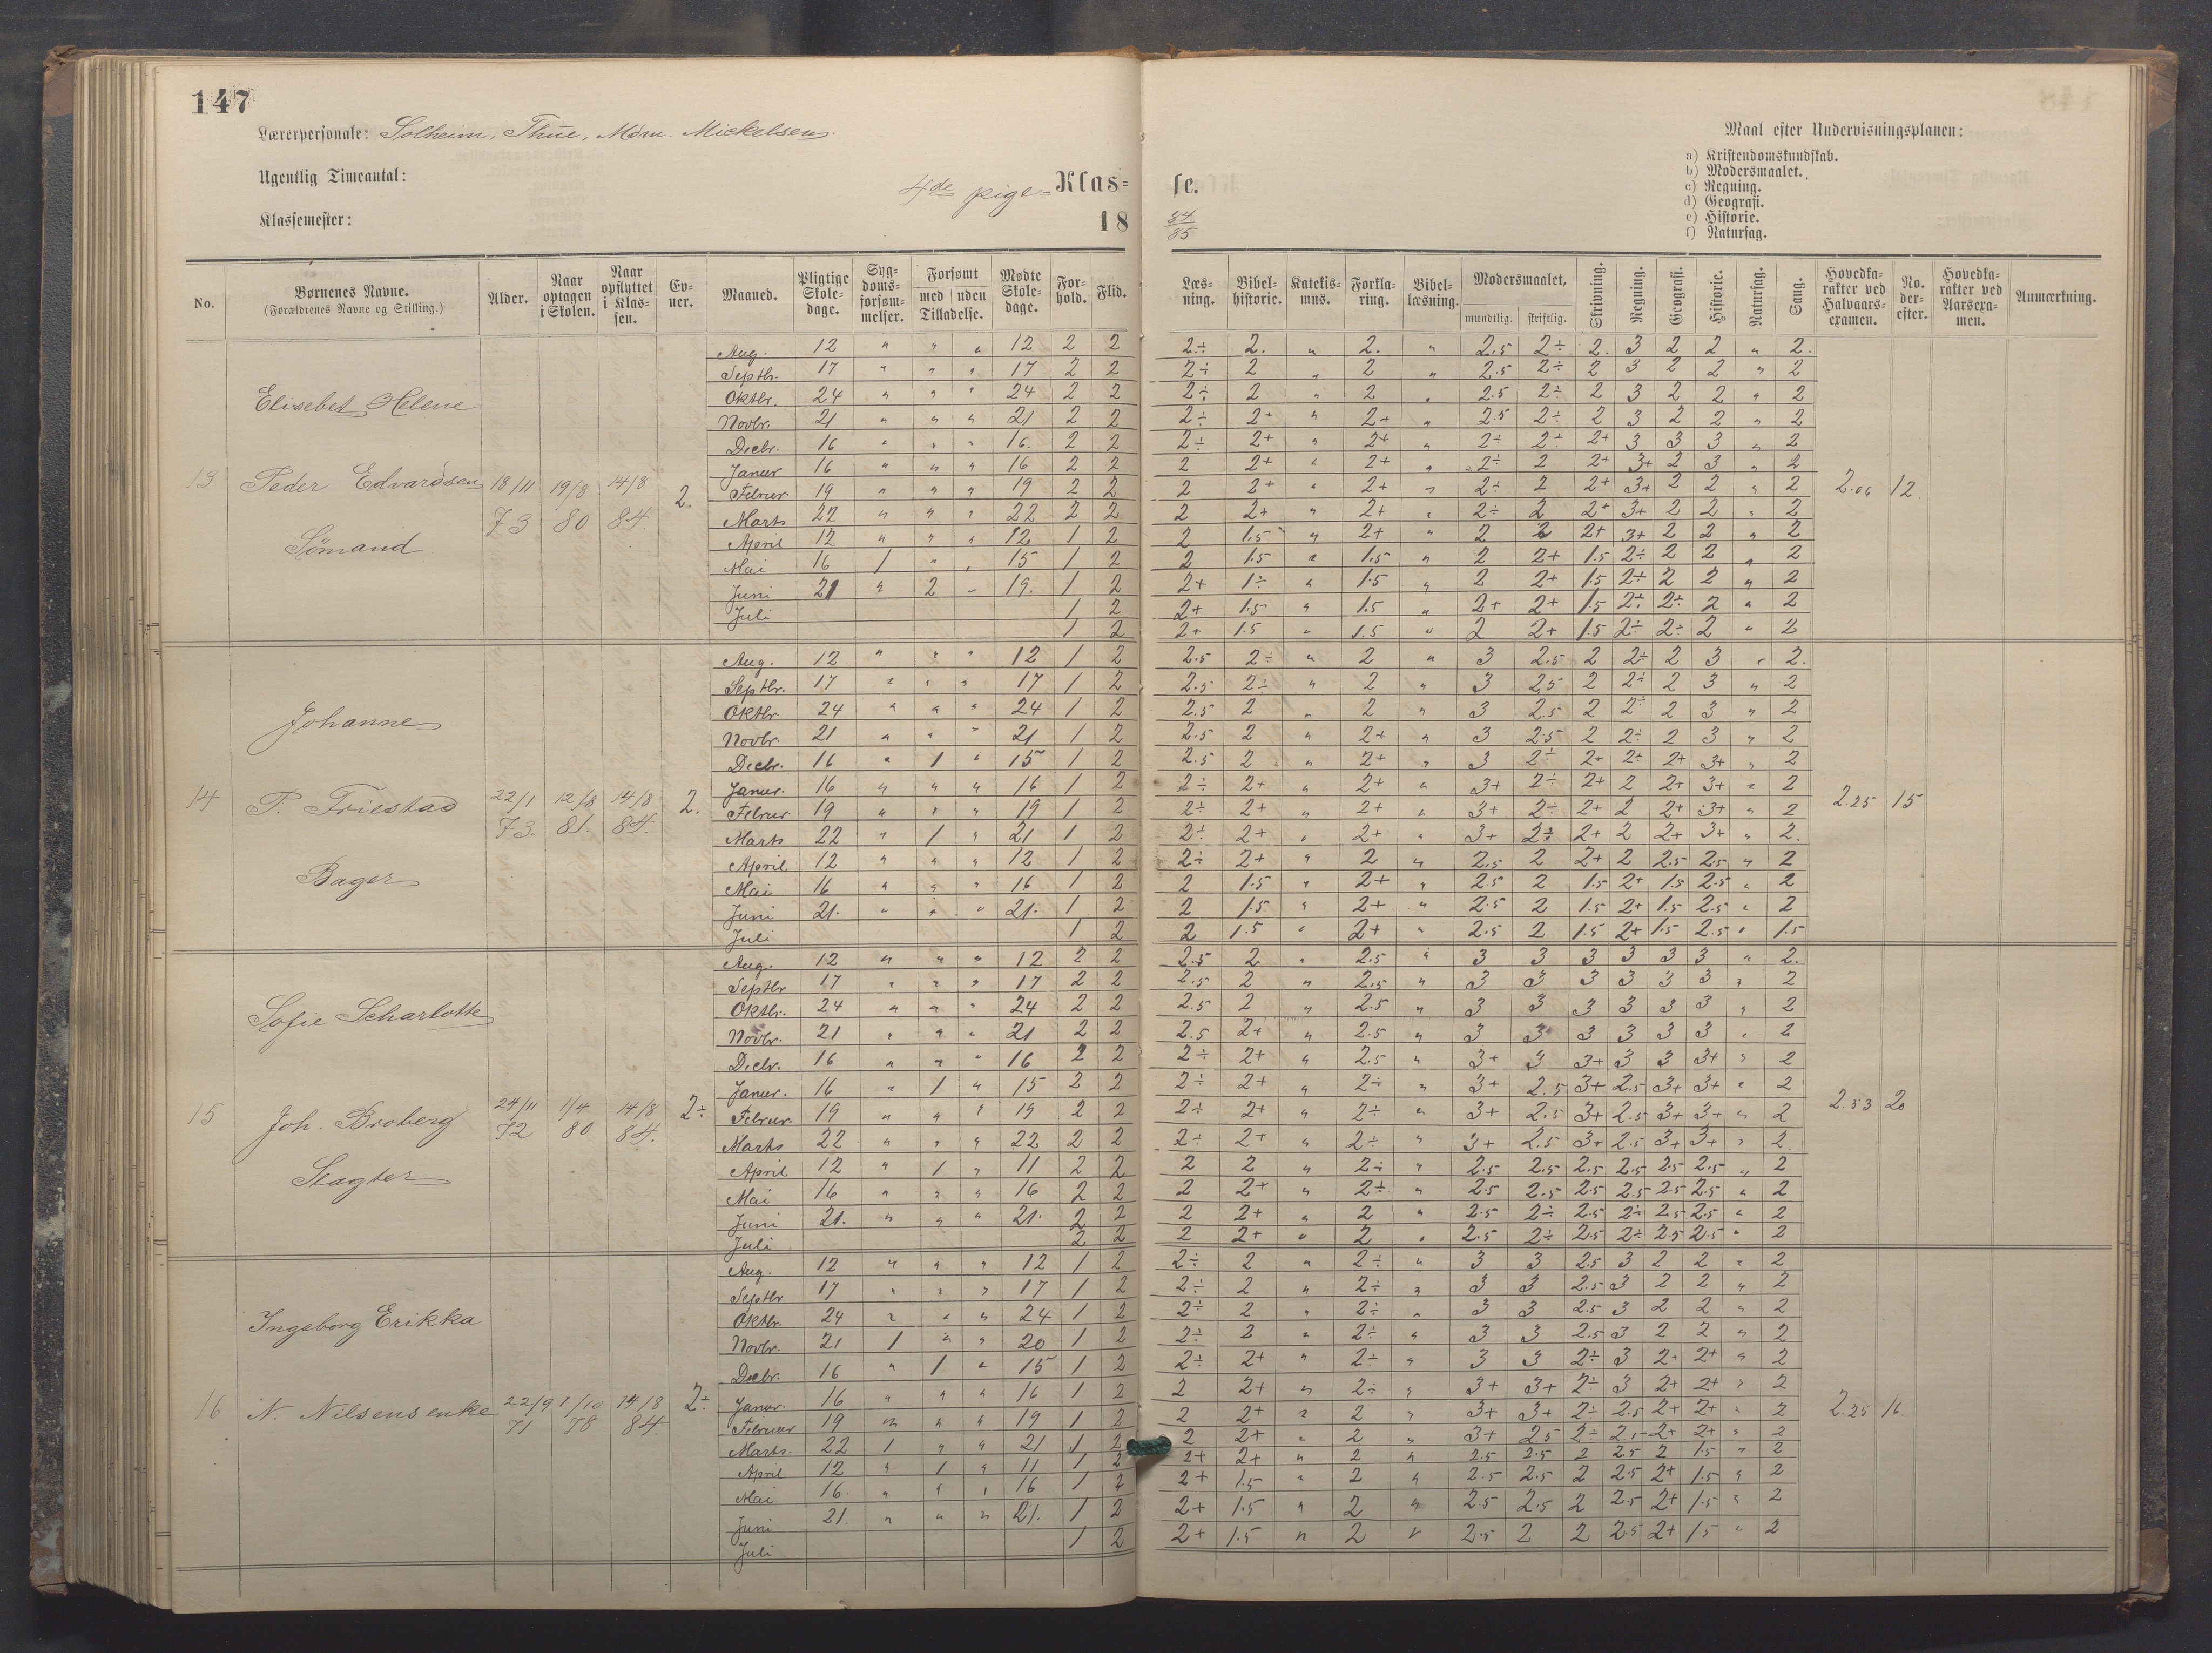 147
Lærerpersonale: Solheim, Thue, Mørn. Mickelsen.
Ugentlig Timeantal:
Klassemester:
4de pige= Klas=
18
se.
84
85
Maal efter Undervisningsplanen:
a) Kristendomskundskab.
b) Modersmaalet.
c) Regning.
d) Geografi.
e) Historie.
f) Naturfag.
No. Børnenes Navne. (Forældrenes Navne og Stilling.) Alder. Naar optagen i Skolen. Naar opflyttet i Klas-sen. Ev-ner. Maaned. Pligtige Skole-dage. Syg-doms-forsøm-melser. Forsømt med uden Tilladelse. Mødte Skole-dage. For-hold. Flid.
Læs-ning. Bibel-historie. Katekis-mus. Forkla-ring. Bibel-læsning. Modersmaalet, mundtlig. skriftlig. Skrivning. Regning. Geografi. Historie. Naturfag. Sang. Hovedka-rakter ved Halvaars-examen. No. der-efter. Hovedka-rakter ved Aarsexa-men. Anmærkning.
13 Elisebet Helene
Peder Edvardsen
Sömand
18/11 73 19/8 80 14/8 84. 2.
Aug. 12 " " " 12 2 2 2÷ 2. " 2. " 2.5 2÷ 2. 3 2 2 " 2.
Septbr. 17 " " " 17 2 2 2÷ 2 " 2 " 2.5 2÷ 2 3 2 2 " 2
Oktbr. 24 " " " 24 2 2 2÷ 2 " 2 " 2.5 2÷ 2 3 2 2 " 2
Novbr. 21 " " " 21 2 2 2÷ 2+ " 2+ " 2.5 2÷ 2 3 2 2 " 2
Decbr. 16 " " " 16. 2 2 2÷ 2+ " 2+ " 2÷ 2÷ 2+ 3 3 3 " 2
Januar 16 " " " 16 2 2 2 2+ " 2+ " 2÷ 2 2+ 3+ 2 3 " 2
Februar 19 " " " 19 2 2 2 2+ " 2+ " 2÷ 2 2+ 3+ 2 2 " 2
Marts 22 " " " 22 2 2 2 2+ " 2+ " 2÷ 2 2+ 3+ 2 2 " 2
April 12 " " " 12 1 2 2 1.5 " 2+ " 2 2 2+ 3+ 2 2 " 2
Mai 16 1 " " 15 1 2 2 1.5 " 1.5 " 2 2+ 1.5 2÷ 2 2 " 2
Juni 21 " 2 " 19. 1 2 2+ 1÷ " 1.5 " 2 2+ 1.5 2÷ 2 2 " 2
Juli 1 2 2+ 1.5 " 1.5 " 2+ 2+ 1.5 2÷ 2÷ 2 " 2
1 2 2+ 1.5 " 1.5 " 2 2+ 1.5 2÷ 2÷ 2 " 2
2.06 12.
14 Johanne
P. Friestad
Bager
22/1 73. 12/8 81. 14/8 84. 2.
Aug. 12 " " " 12 1 2 2.5 2÷ " 2 " 3 2.5 2 2÷ 2 3 " 2.
Septbr. 17 " " " 17 1 2 2.5 2÷ " 2 " 3 2.5 2 2÷ 2 3 " 2
Oktbr 24 " " " 24 1 2 2.5 2 " 2 " 3 2.5 2 2÷ 2 3 " 2
Novbr. 21 " " " 21 1 2 2.5 2 " 2+ " 3 2.5 2 2÷ 2 3 " 2
Decbr. 16 " 1 " 15 1 2 2.5 2 " 2+ " 3 2÷ 2+ 2÷ 2+ 3+ " 2
Januar. 16 " " " 16 1 2 2÷ 2+ " 2+ " 3+ 2÷ 2+ 2 2+ 3+ " 2
Februar 19 " " " 19 1 2 2÷ 2+ " 2+ " 3+ 2÷ 2+ 2 2+ 3+ " 2
Marts 22 " 1 " 21 1 2 2÷ 2+ " 2+ " 3+ 2÷ 2+ 2 2+ 3+ " 2.
April 12 " " " 12 1 2 2÷ 2+ " 2 " 2.5 2 2+ 2 2.5 2.5 " 2
Mai 16 " " " 16 1 2 2 1.5 " 2+ " 2.5 2 1.5 2+ 1.5 2.5 " 2
Juni 21. " " " 21. 1 2 2 1.5 " 2+ " 2.5 2 1.5 2+ 1.5 2.5 " 2
Juli 1 2 2 1.5 " 2+ " 2.5 2 1.5 2+ 1.5 2.5 " 1.5
2.25 15
15 Sofie Scharlotte
Joh. Broberg
Slagter
24/11 72 1/4 80 14/8 84. 2÷
Aug. 12 " " " 12 2 2 2.5 2 " 2.5 " 3 3 3 3 3 3 " 2.
Septbr 17 " " " 17 2 2 2.5 2 " 2.5 " 3 3 3 3 3 3 " 2
Oktbr. 24 " " " 24 2 2 2.5 2 " 2.5 " 3 3 3 3 3 3 " 2
Novbr. 21 " " " 21 2 2 2.5 2+ " 2.5 " 3 3 3 3 3 3 " 2
Decbr. 16 " " " 16 2 2 2÷ 2+ " 2.5 " 3+ 3 3+ 3 3 3+ " 2
Januar. 16 " 1 " 15 2 2 2÷ 2+ " 2÷ " 3+ 2.5 3+ 2.5 3+ 3+ " 2
Februar 19 " " " 19 2 2 2÷ 2+ " 2÷ " 3+ 2.5 3+ 2.5 3+ 3+ " 2
Marts 22 " " " 22 2 2 2÷ 2+ " 2÷ " 3+ 2.5 3+ 2.5 3+ 3+ " 2
April 12 " 1 " 11 2 2 2 2 " 2÷ " 2.5 2.5 2.5 2.5 2.5 2.5 " 2
Mai 16 " " " 16 2 2 2 2+ " 2÷ " 2.5 2.5 2.5 2.5 2.5 2.5 " 2
Juni 21. " " " 21. 2 2 2 2+ " 2 " 2.5 2÷ 2.5 2÷ 2.5 2.5 " 2
Juli 2 2 2 2+ " 2 " 2.5 2÷ 2.5 2÷ 2.5 2.5 " 2
2.53 20
16 Ingeborg Erikka
N. Nilsens enke
22/9 71 1/10 78 14/8 84. 2÷
Aug. 12 " " " 12 1 2 2÷ 2 " 2÷ " 3 3 2.5 3 2 2 " 2
Septbr 17 " " " 17 1 2 2÷ 2 " 2÷ " 3 3 2.5 3 2 2 " 2
Oktbr. 24 " " " 24 1 2 2÷ 2 " 2÷ " 3 3 2.5 3 2 2 " 2
Novbr. 21 1 " " 20 1 2 2÷ 2 " 2÷ " 3 3 2.5 3 2 2 " 2
Decbr. 16 " 1 " 15 1 2 2÷ 2+ " 2÷ " 3 3 2÷ 3 2+ 2+ " 2
Januar. 16 " " " 16 1 2 2 2+ " 2÷ " 3+ 3+ 2÷ 3 2+ 2+ " 2
Februar 19 " " " 19 1 2 2 2+ " 2 " 3+ 3+ 2÷ 2.5 2+ 2+ " 2
Marts. 22 1 " " 21 1 2 2 2+ " 2 " 3+ 2.5 2÷ 2.5 2+ 2+ " 2
April 12 " 1 " 11 1 2 2+ 2+ " 2 " 2.5 2.5 2 2.5 2 1.5 " 2
Mai 16. " " " 16 1 2 2+ 1.5 " 2 " 2.5 2.5 2 2.5 2+ 1.5 " 2
Juni 21. " " " 21. 1 2 2+ 1.5 " 2 " 2.5 2.5 2 2.5 2+ 1.5 " 2
Juli 1 2 2+ 1.5 " 2 " 2.5 2 2 2.5 2+ 1.5 " 2
2.25 16.